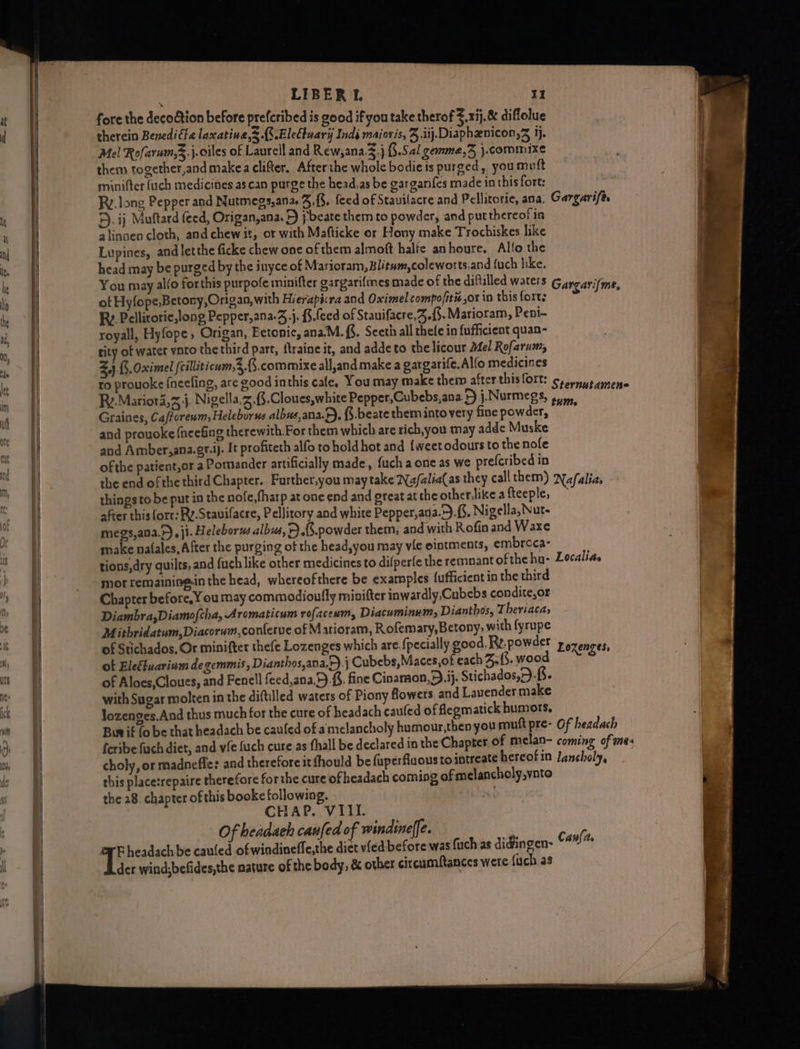 LIBER I. 11
fore the decoction before prescribed is good if you take therof ℥.xij.& dissolue
therein Benedicta laxatiua,℥.ß.Electuarij Indi maioris, ʒ.iij.Diaphænicon,ʒ ij.
Mel Rosarum,℥.j.oiles of Laurell and Rew,ana.℥.j ß.Sal gemme,ʒ j.commixe
them together,and make a clister. After the whole bodie is purged, you must
minister such medicines as can purge the head.as be gargarises made in this fort:
℞.long Pepper and Nutmegs,ana. ʒ.ß. seed of Stauisacre and Pellitorie, ana. Gargarise.
℈.ij Mustard seed, Origan,ana. ℈ j beate them to powder, and put thereof in
a linnen cloth, and chew it, or with Masticke or Hony make Trochiskes like
Lupines, and let the sicke chew one of them almost halfe an houre. Also the
head may be purged by the iuyce of Marioram, Blitum,coleworts.and such like.
You may also for this purpose minister gargarismes made of the distilled waters Gargarisme,
of Hysope,Betony,Origan, with Hierapicra and Oximel compositū ,or in this fort:
℞. Pellitorie,long Pepper,ana.ʒ.j. ß.seed of Stauisacre,ʒ.ß. Marioram, Peni-
royall, Hysope, Origan, Betonie, ana.M.ß. Seeth all these in sufficient quan-
tity of water vnto the third part, straine it, and adde to the licour Mel Rosarum,
℥j ß.Oximel scilliticum,℥.ß.commixe all,and make a gargarise. Also medicines
to prouoke sneesing, are good in this case, You may make them after this sort: Sternutamen-
℞.Mariorā,ʒ.j. Nigella,ʒ.ß.Cloues,white Pepper,Cubebs,ana ℈ j.Nurmegs, tum,
Graines, Castoreum, Heleborus albus,ana.℈. ß.beate them into very fine powder,
and prouoke sneesing therewith.For them which are rich,you may adde Muske
and Amber,ana.gr.ij. It profiteth also to hold hot and sweet odours to the nose
of the patient,or a Pomander artificially made, such a one as we prescribed in
the end of the third Chapter. Further,you may take Nasalia(as they call them) Nasalia,
things to be put in the nose,sharp at one end and great at the other.like a steeple,
after this sort: ℞.Stauisacre, Pellitory and white Pepper,ana.℈.ß. Nigella,Nut-
megs,ana.℈.ji. Heleborus albus,℈.ß.powder them, and with Rosin and Waxe
make nasales, After the purging of the head,you may vse ointments, embroca-
tions,dry quilts, and such like other medicines to disperse the remnant of the hu- Localias
mor remaining in the head, whereof there be examples sufficient in the third
Chapter before, You may commodiously minister inwardly,Cubebs condite,or
Diambra,Diamoscha, Aromaticum rosaceum, Diacuminum, Dianthos, Theriaca,
Mithridatum,Diacorum,conserue of Marioram, Rosemary,Betony, with syrupe
of Stichados. Or minister these Lozenges which are.specially good.℞.powder Lozenges,
of Electuarium de gemmis, Dianthos,ana.℈.j Cubebs,Maces,of each ʒ.ß. wood
of Aloes,Cloues, and Fenell seed,ana.℈.ß. fine Cinamon,℈.ij. Stichados,℈.ß.
with Sugar molten in the distilled waters of Piony flowers and Lauender make
lozenges.And thus much for the cure of headach caused of flegmatick humors.
But if so be that headach be caused of a melancholy humour,then you must pre- Of headach
scribe such diet, and vse such cure as shall be declared in the Chapter of melan- coming of me-
choly, or madnesse: and therefore it should be superfluous to intreate hereof in lancholy,
this place:repaire therefore for the cure of headach coming of melancholy,vnto
the 28. chapter of this booke following.
CHAP. VIII.
Of headach caused of windinesse.
IF headach be caused of windinesse,the diet vsed before was such as did ingen- Causa.
der wind;besides,the nature of the body, & other circumstances were such as